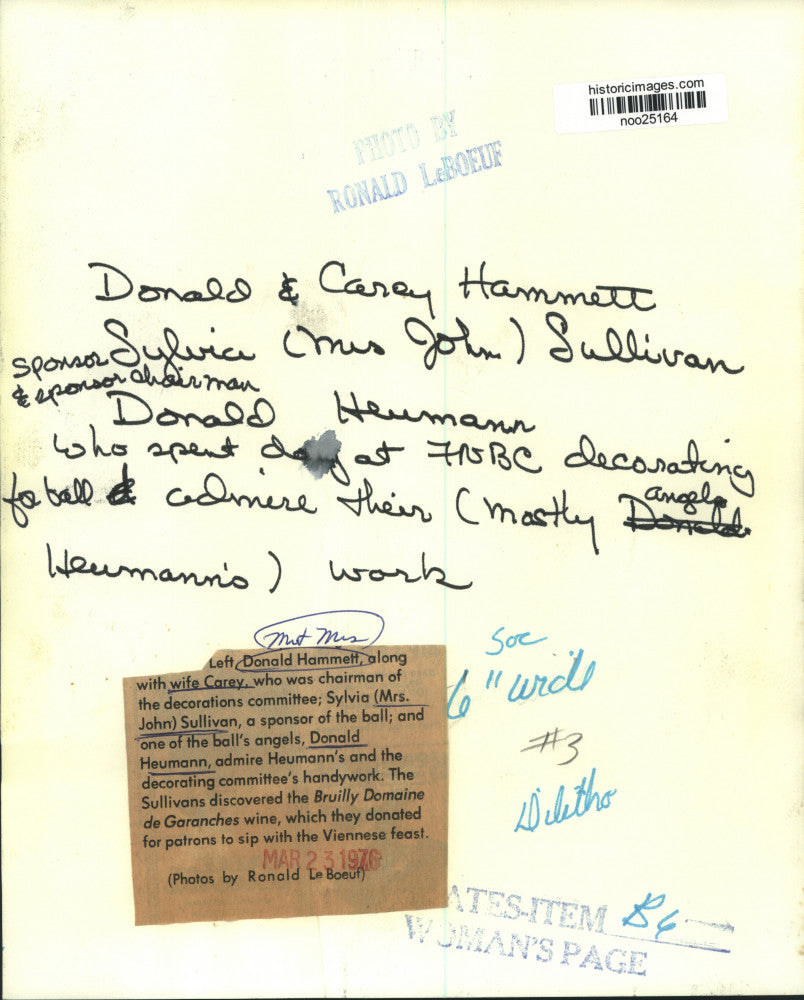 historicimages.com
noo25164
PHOTO BY
RONALD LeBOEUF
Donald & Carey Hammett
Sylvia (Mrs John) Sullivan
sponsor
& sponsor chairman
Donald Heumann
who spent day at FNBC decorating
for ball & admire their (mostly angel
Donald
Heumann's) work
Mr & Mrs
Left, Donald Hammett, along
with wife Carey, who was chairman of
the decorations committee; Sylvia (Mrs.
John) Sullivan, a sponsor of the ball; and
one of the ball's angels, Donald
Heumann, admire Heumann's and the
decorating committee's handywork. The
Sullivans discovered the Bruilly Domaine
de Garanches wine, which they donated
for patrons to sip with the Viennese feast.
MAR 23 1976
(Photos by Ronald Le Boeuf)
Soc
6" wide
#3
ATES-ITEM B6
WOMAN'S PAGE